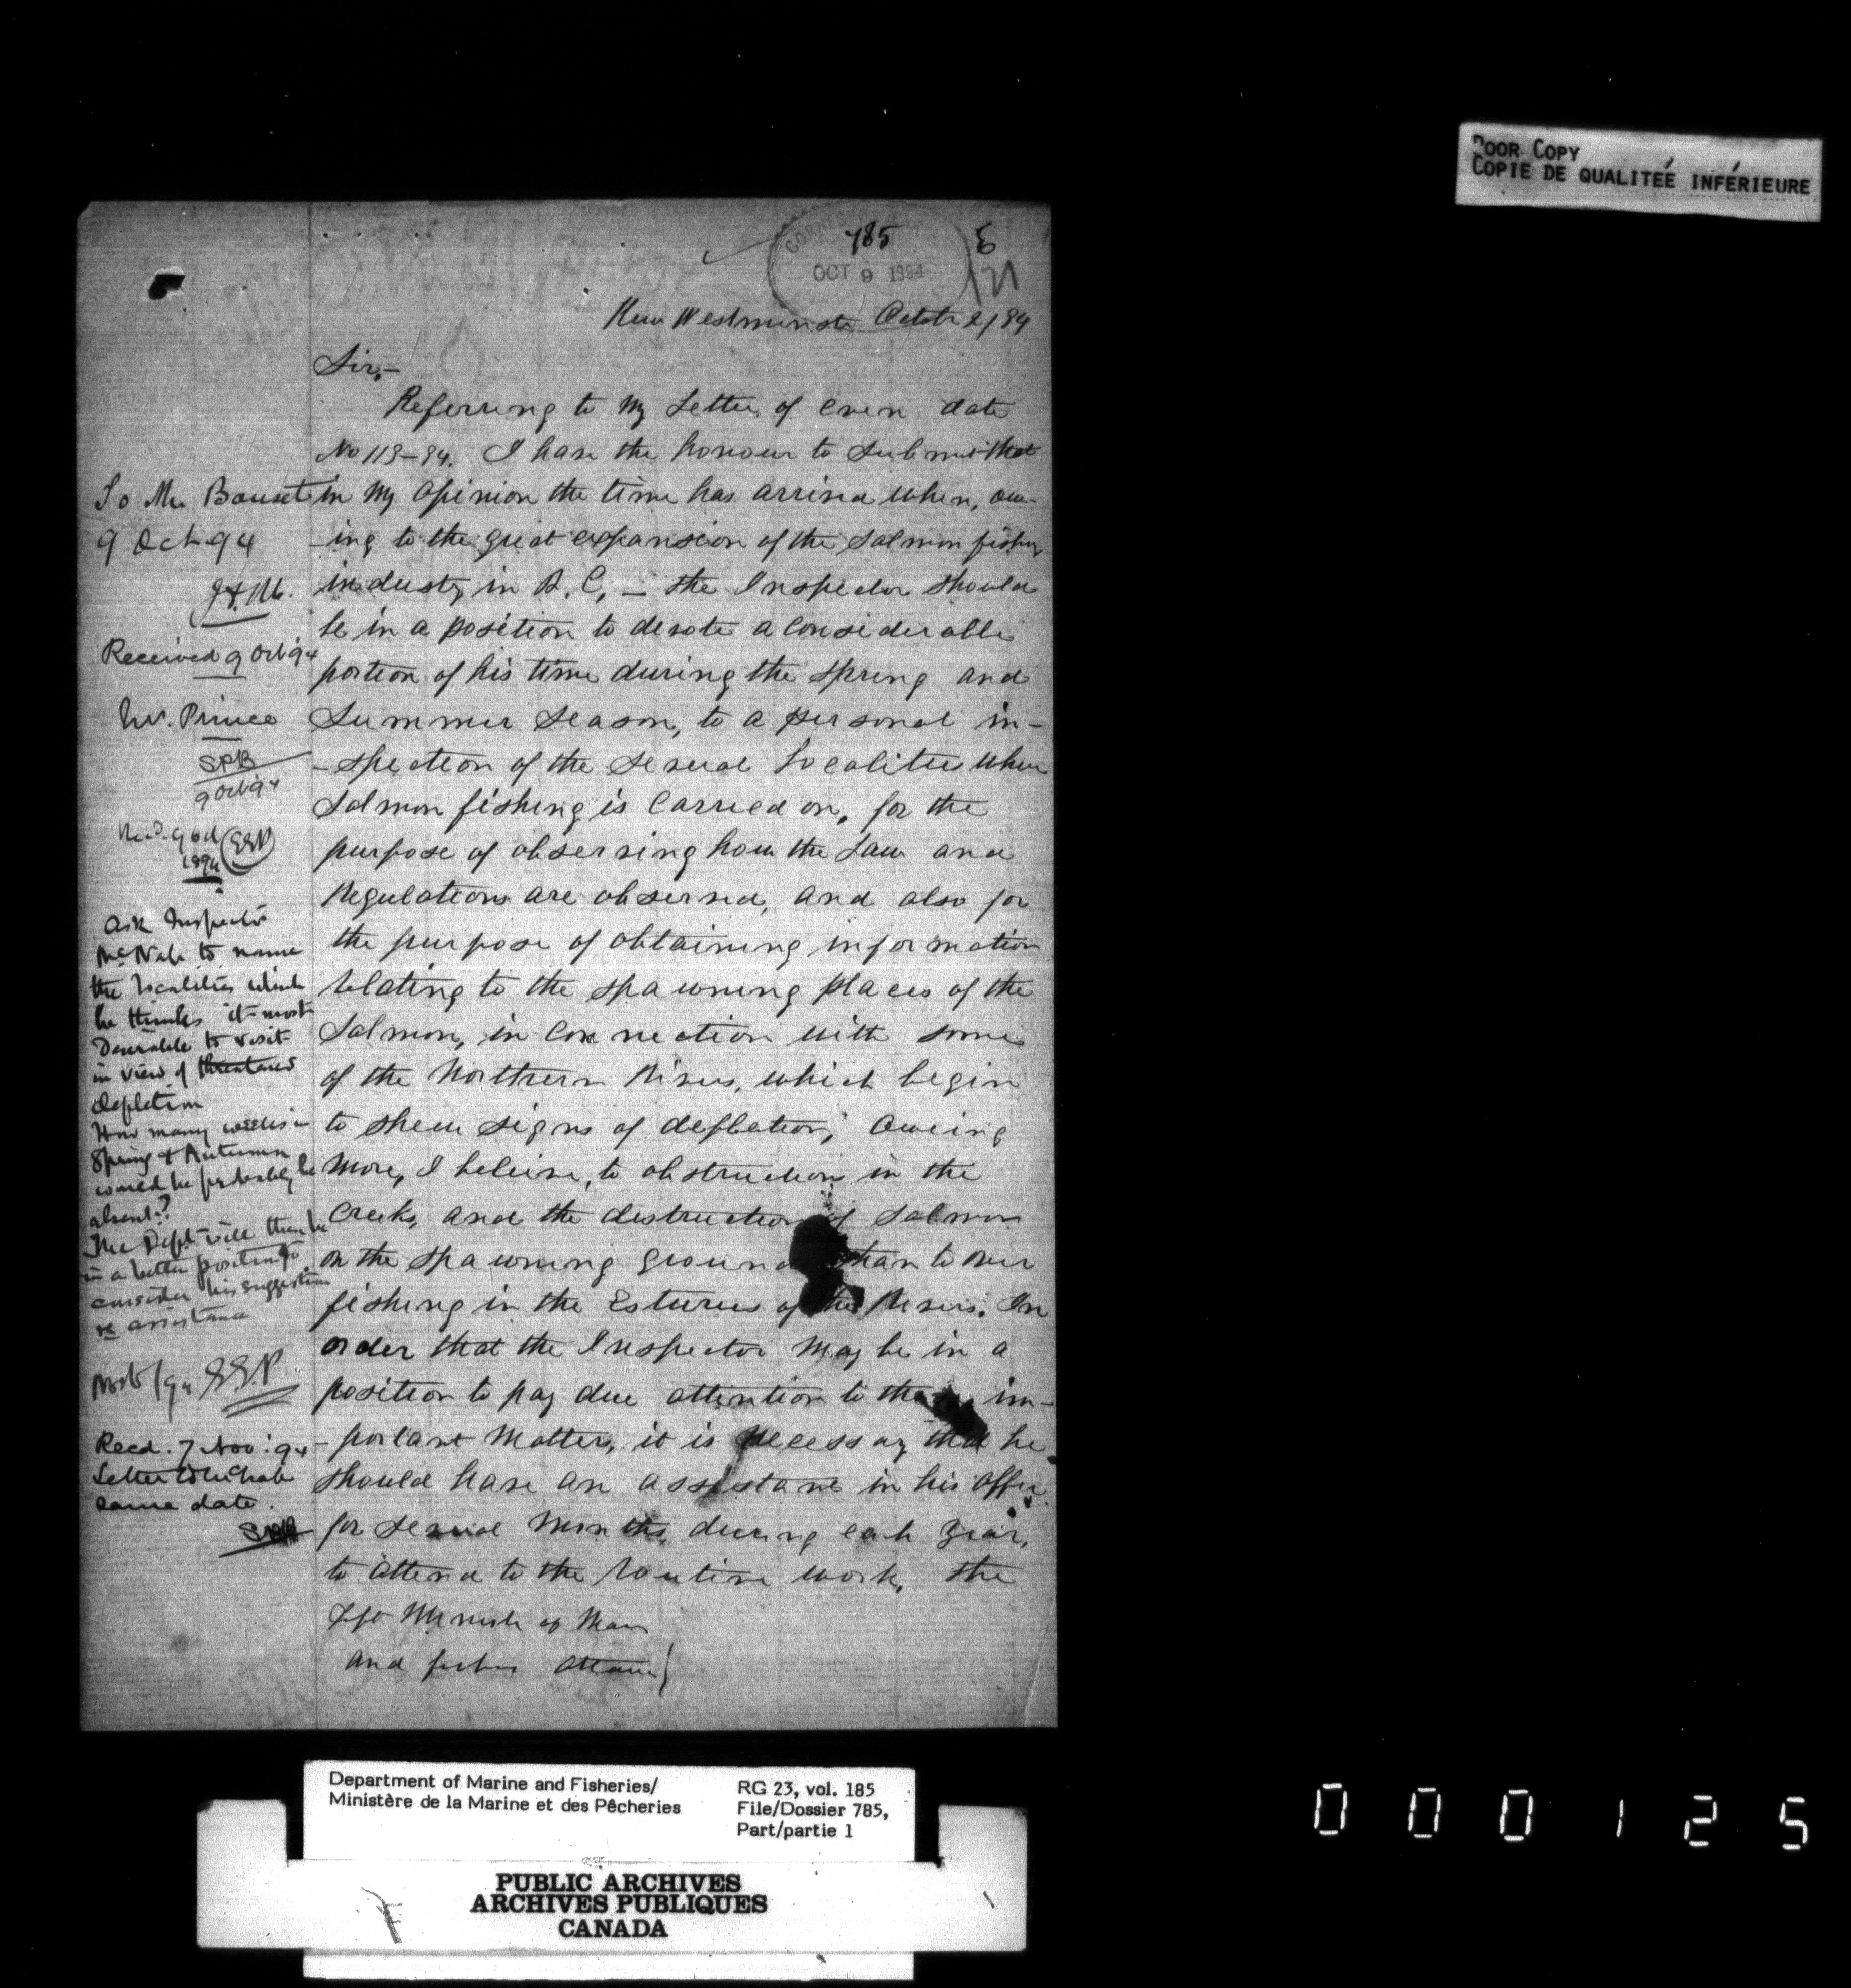 POOR COPY
COPIE DE QUALITEÉ INFÉRIEURE
785
OCT 9 1894
121
New Westminster Octobr 2/94
Sir,-
Referring to my Letter of even date
No 119-94. I have the honour to submit that
in my opinion the time has arrived when, ow-
-ing to the great expansion of the salmon fishery
industry in B.C, - the Inspector should
be in a position to devote a considerable
portion of his time during the spring and
Summer Season, to a personal in-
-spection of the several Localities where
Salmon fishing is Carried on, for the
purpose of observing how the Law and
Regulations are observed, and also for
the purpose of obtaining information
relating to the spawning places of the
Salmon, in Connection with some
of the Northern Rivers, which begin
to shew signs of depletion, Oweing
more, I beleive, to obstruction in the
Creeks, and the destruction of Salmon
on the spawning ground than to over
fishing in the Esturies of the Rivers. In
order that the Inspector may be in a
position to pay due attention to im-
-portant Matters, it is necessary that he
should have an assistant in his office
for several Months, during each Year,
to attend to the routine work, the
and fisheries Ottawa
To Mr Bauset
9 Oct 94
J.H.
Received 9 Oct 94
Mr. Prince
SPB
9 Oct 94
Recd. 9 Oct
1894 EEP
Ask Inspector
McNab to name
the localities which
he thinks it most
desirable to visit
in view of threatened
depletion
How many weeks in
Spring & Autumn
would he probably be
absent?
The Dept. will then be
in a better position to
consider his suggestion
re assistance
EEP
Recd. 7 Nov: 94
Letter to McNab
same date.
SPB
Department of Marine and Fisheries/
Ministère de la Marine et des Pêcheries
RG 23, vol. 185
File/Dossier 785,
Part/partie 1
PUBLIC ARCHIVES
ARCHIVES PUBLIQUES
CANADA
000125